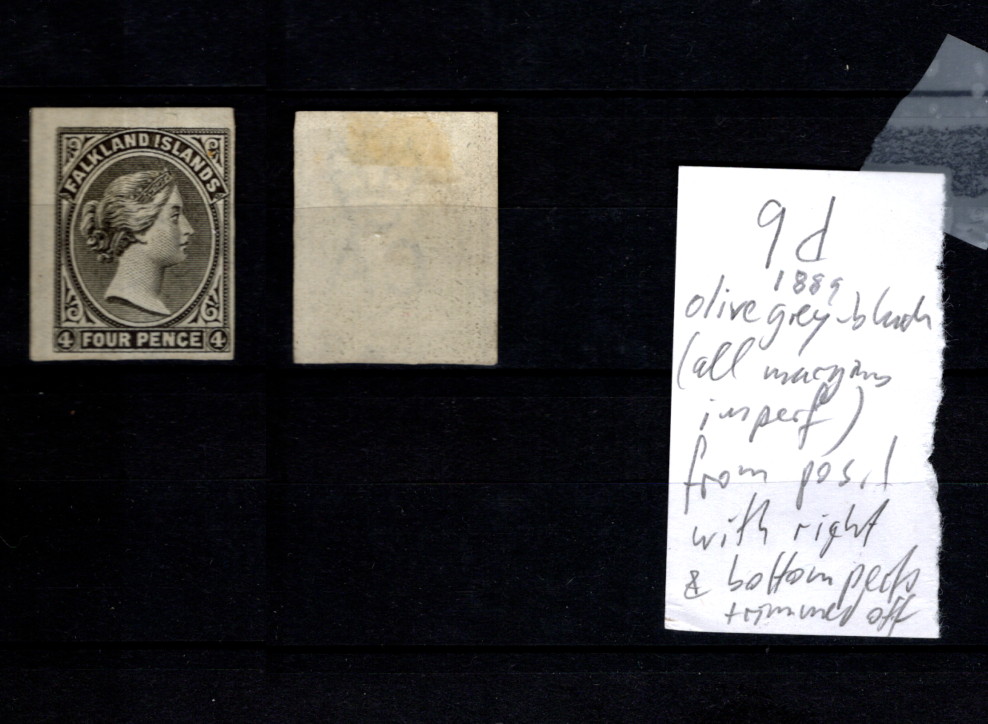 FALKLAND ISLANDS
4 FOUR PENCE 4
9d
1889
olive grey-black
(all margins
imperf)
from pos. 1
with right
& bottom perfs
trimmed off